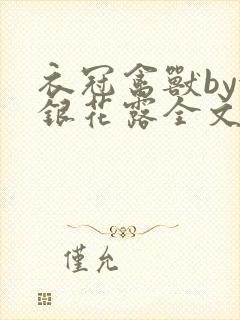 衣冠禽獸by
銀花露全文
僅允